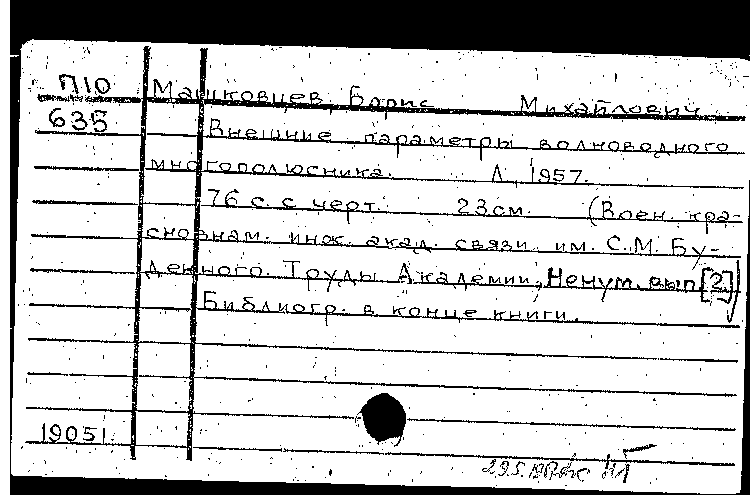 П10 Машковцев, Борис Михайлович
635 Внешние параметры волноводного
многополюсника. Л., 1957.
76 с. с черт. 23 см. (Воен. крас-
снознам. инж. акад. связи им. С.М. Бу-
денного. Труды Академии, Ненум. вып. [2])
Библиогр. в конце книги.
19051